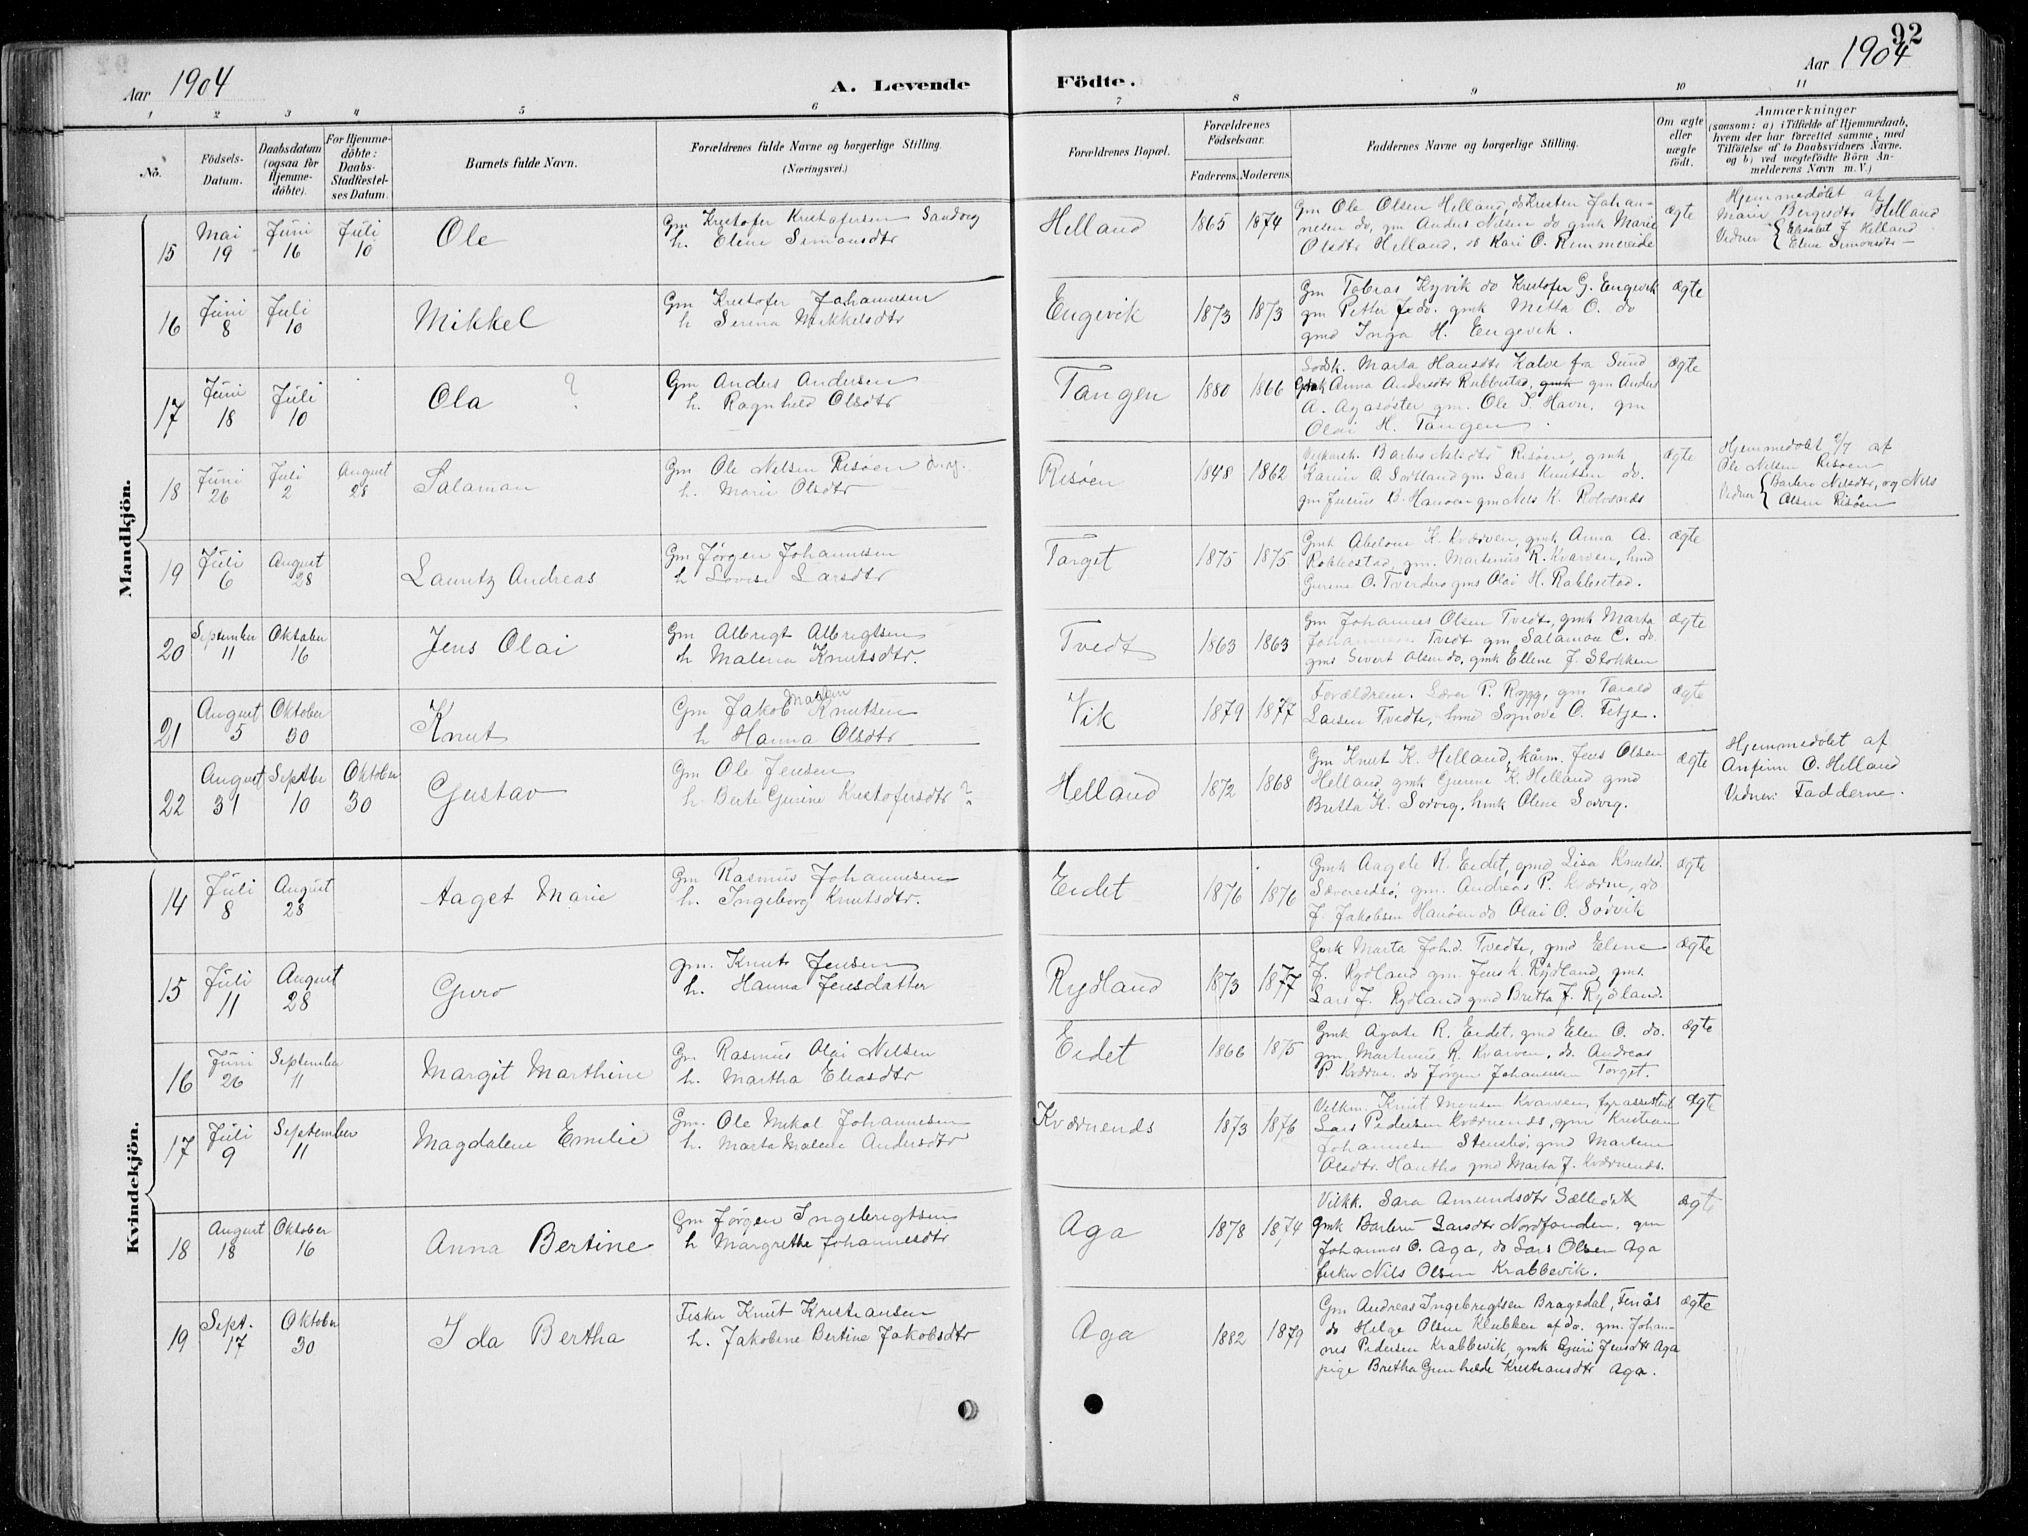 92
Aar 1904
A. Levende
Födte.
Aar 1904
1 2 3 4 5 6 7 8 9 10 11
No.
Födsels-Datum.
Daabsdatum (ogsaa for Hjemmedöbte).
For Hjemmedöbte: Daabs-Stadfæstelses Datum.
Barnets fulde Navn.
Forældrenes fulde Navne og borgerlige Stilling.
(Næringsvei.)
Forældrenes Bopæl.
Forældrenes Födselsaar.
Faderens.
Moderens.
Faddernes Navne og borgerlige Stilling.
Om ægte eller uægte födt.
Anmærkninger
(saasom: a) i Tilfælde af Hjemmedaab, hvem der har forrettet samme, med Tilföielse af to Daabsvidners Navne, og b) ved uægtefödte Börn Anmelderens Navn m. V.)
Mandkjön.
15 Mai 19 Juni 16 Juli 10 Ole
Gm Kristofer Kristofersen Sandvig
h. Elene Simonsdtr
Helland 1865 1874
Gm Ole Olsen Helland, do Kristen Johan-
nesen do, gm Anders Nilsen do gmk Marie
Olsdtr Helland, do Kari O. Remmereide
ægte
Hjemmedöbt af
Marie Bergesdtr Helland
Vidner Elisabet J. Helland
Elene Simonsdtr —
16 Juni 8 Juli 10 Mikkel
Gm Kristofer Johannesen
h Serina Mikkelsdtr
Engevik 1873 1873
Gm Tobias Kyvik do Kristofer G. Engevik
gm Petter J. do. gmk Mitta O. do
gmd Inga H. Engevik.
ægte
17 Juni 18 Juli 10 Ola ?
Gm Anders Andersen
h. Ragnhild Olsdtr
Tangen 1880 1866
Marta Hansdtr Kalve fra Sund
Gmk Anna Andersdtr Rubbestad, gmk gm Anders
A. Agasøster gm. Ole S. Havn, gm
Olai H. Tangen.
ægte
18 Juni 26 Juli 2 August 28 Salamon
Gm Ole Nilsen Risøen
h. Marie Olsdtr
Risøen 1848 1862
Barbro Nilsdtr Risøen, gmk
Karin O. Sortland gm Lars Knutsen do.
gm Julius D. Hanøen gm Nils K. Rolvsnes
ægte
Hjemmedöbt 2/7 af
Ole Nilsen Risøen
Vidner Barbro Nilsdtr, og Nils
Olsen Risøen
19 Juli 6 August 28 Lauritz Andreas
Gm Jørgen Johannesen
h Lovise Larsdtr
Torget 1875 1875
Gmk Abelone K. Kværven, gmk Anna A.
Rabbestad, gm. Martinus R. Kvarven, hmd
Gurine O. Tverderø gms Olai H. Rabbestad.
ægte
20 September 11 Oktober 16 Jens Olai
Gm Albrigt Albrigtsen
h Malena Knutsdtr.
Tvedt 1863 1863
Gm Johannes Olsen Tvedt, gmk Marta
Johannesen Tvedt gm Salamon C. do.
gms Sivert Olsen do, gmk Ellene J. Stokken
ægte
21 August 5 Oktober 30 Knut
Gm Jakob Martin Knutsen
h Hanna Olsdtr
Vik 1879 1877
Forældrene. Lærer P. Rygg, gm Tarald
Larsen Tvedte, hmd Synove O. Fitje.
ægte
22 August 31 Septbr 10 Oktober 30 Gustav
Gm Ole Jensen
h Berte Gurine Kristofersdtr ?
Helland 1872 1868
Gm Knut K. Helland, kårm. Jens Olsen
Helland, gmk Gurine K. Helland gmd
Britta K. Sorvig, hmk Olene Sorvig.
ægte
Hjemmedöbt af
Anfinn O. Helland
Vidner: Fadderne.
Kvindekjön.
14 Juli 8 August 28 Aaget Marie
Gm Rasmus Johannesen
h. Ingeborg Knutsdtr.
Eidet 1876 1876
Gmk Aagele R. Eidet, gmd Lisa Knutsd.
gm. Andreas P. Kværne, do
J. Jakobsen Hanøen do Olai O. Sørvik
ægte
15 Juli 11 August 28 Guro
gm. Knut Jensen
h. Hanna Jensdatter
Rydland 1873 1877
Gmk Marta Johd. Tvedte, gmd Elene
J. Rydland gm. Jens K. Rydland, gms.
Lars J. Rydland gmd Britta J. Rydland.
ægte
16 Juni 26 September 11 Margit Marthine
Gm Rasmus Olai Nilsen
h. Martha Eliasdtr
Eidet 1866 1875
Gmk Agate R. Eidet, gmd Elen O. do.
gm. Martinus R. Kvarven, do. Andreas
P. Kværne. do Jørgen Johannesen Torget.
ægte
17 Juli 9 September 11 Magdalene Emilie
Gm. Ole Mikal Johannesen
h. Marta Malene Andersdtr
Kværnenes 1873 1876
Velkm. Knut Monsen Kvarven, fyrassistent
Lars Pedersen Kværnenes, gm Kristian
Johannesen Stensbø, gmd Martine
Olsdtr. gmd Marta J. Kværnenes.
ægte
18 August 18 Oktober 16 Anna Bertine
Gm Jørgen Ingebrigtsen
h Margrethe Johannesdtr
Aga 1878 1874
Virkk. Sara Amundsdtr
Gmk Barbro Larsdtr Nordfonden, gm
Johannes O. Aga, do Lars Olsen Aga
fisker Nils Olsen Krabbevik.
ægte
19 Sept. 17 Oktober 30 Ida Bertha
Fisker Knut Kristiansen
h. Jakobine Bertine Jakobsdtr
Aga 1882 1879
Gm Andreas Ingebrigtsen Bragedal, Fenås
do Helge Olsen Klubben af do. gm. Johan-
nes Pedersen Krabbevik, gmk Guri Jensdtr Aga
pige Bretha Gunhilde Kristiansdtr Aga.
ægte